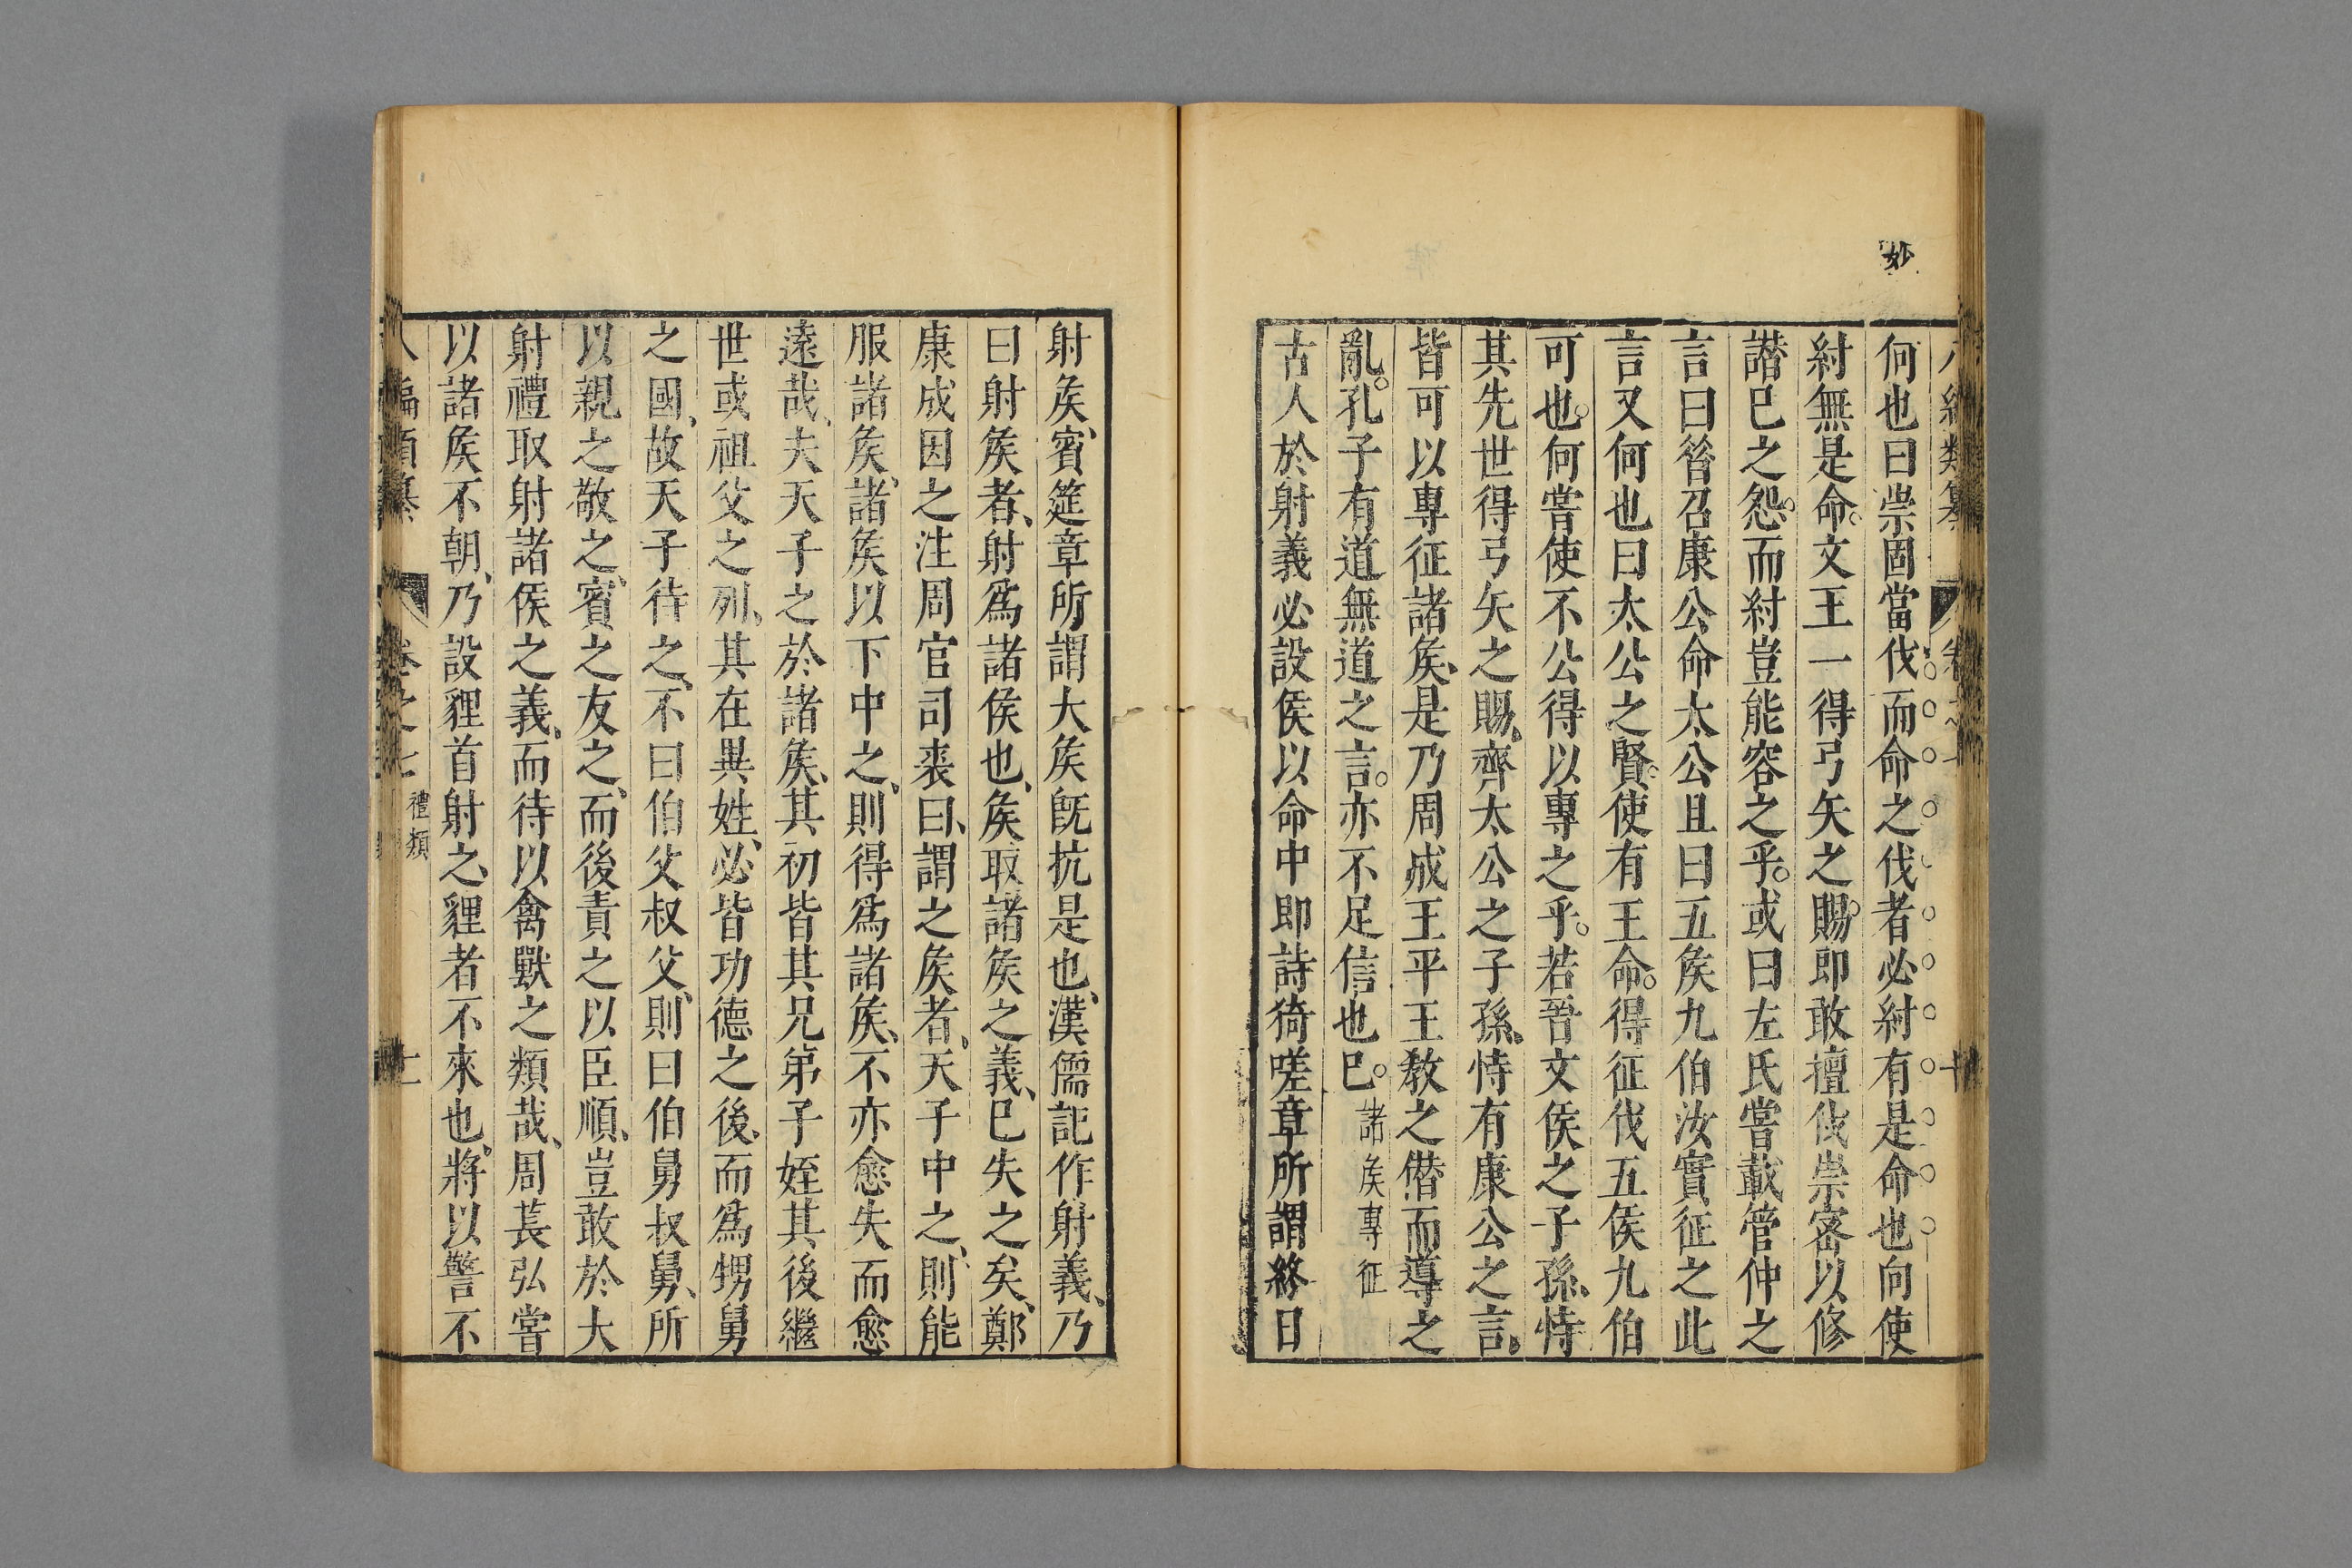 妙
何也曰崇固當伐而命之伐者必紂有是命也向使
紂無是命文王一得弓矢之賜即敢擅伐崇密以修
譖已之怨而紂豈能容之乎或曰左氏嘗載管仲之
言曰昝召康公命太公且曰五矦九伯汝實征之此
言又何也曰太公之賢使有王命得征伐五侯九伯
可也何嘗使不公得以專之乎若吾文侯之子孫恃
其先世得弓矢之賜齊太公之子孫恃有康公之言
皆可以專征諸矦是乃周成王平王教之僣而導之
亂孔子有道無道之言亦不足信也已 諸矦專征
古人於射義必設侯以命中即詩猗嗟章所謂終日
射矦賓筵章所謂大矦旣抗是也漢儒記作射義乃
曰射矦者射爲諸侯也矦取諸矦之義已失之矣鄭
康成因之注周官司裘曰謂之矦者天子中之則能
服諸矦諸矦以下中之則得爲諸矦不亦愈失而愈
遠哉夫天子之於諸矦其初皆其兄弟子姪其後繼
世或祖父之列其在異姓必皆功德之後而爲甥舅
之國故天子待之不曰伯父叔父則曰伯舅叔舅所
以親之敬之賓之友之而後責之以臣順豈敢於大
射禮取射諸侯之義而待以禽獸之類哉周萇弘嘗
以諸矦不朝乃設貍首射之貍者不來也將以警不
八編類纂 卷之七 禮類 十一